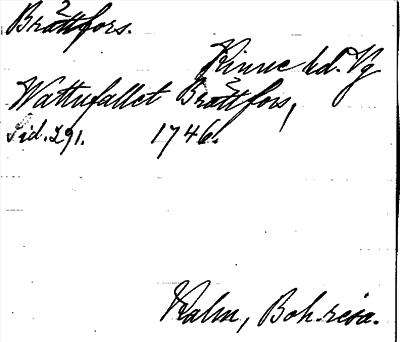 Bråttfors.
Kinne hd. Vg
Wattufallet Bråttfors,
sid. 291. 1746.
Kalm, Boh. resa.